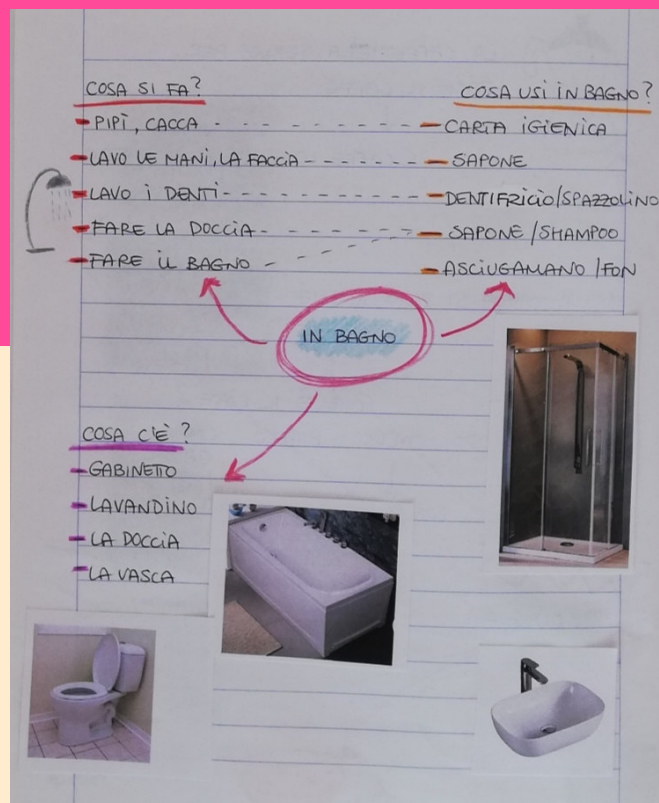 COSA SI FA?
- PIPÌ, CACCA
- LAVO LE MANI, LA FACCIA
- LAVO I DENTI
- FARE LA DOCCIA
- FARE IL BAGNO
COSA USI IN BAGNO?
- CARTA IGIENICA
- SAPONE
- DENTIFRICIO/SPAZZOLINO
- SAPONE/SHAMPOO
- ASCIUGAMANO/FON
IN BAGNO
COSA C'È?
- GABINETTO
- LAVANDINO
- LA DOCCIA
- LA VASCA